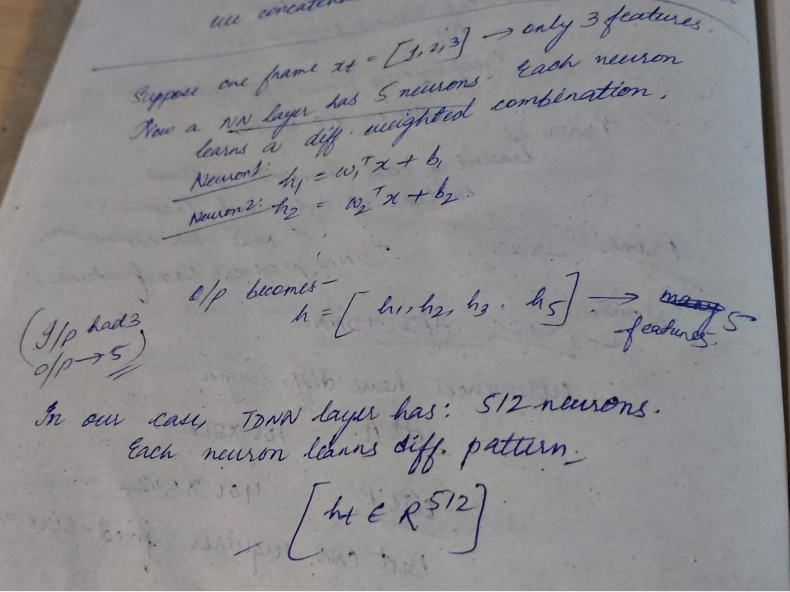 we concaten
Suppose one frame xt = [1, 2, 3] → only 3 features.
Now a NN layer has 5 neurons. Each neuron
learns a diff. weighted combination.
Neuron1: h₁ = w₁ᵀx + b₁
Neuron2: h₂ = w₂ᵀx + b₂
O/p becomes-
h = [h₁, h₂, h₃ . h₅] → many 5
features.
(I/p had 3
O/p → 5)
In our case, TDNN layer has: 512 neurons.
Each neuron learns diff. pattern.
[ht ∈ R⁵¹²]